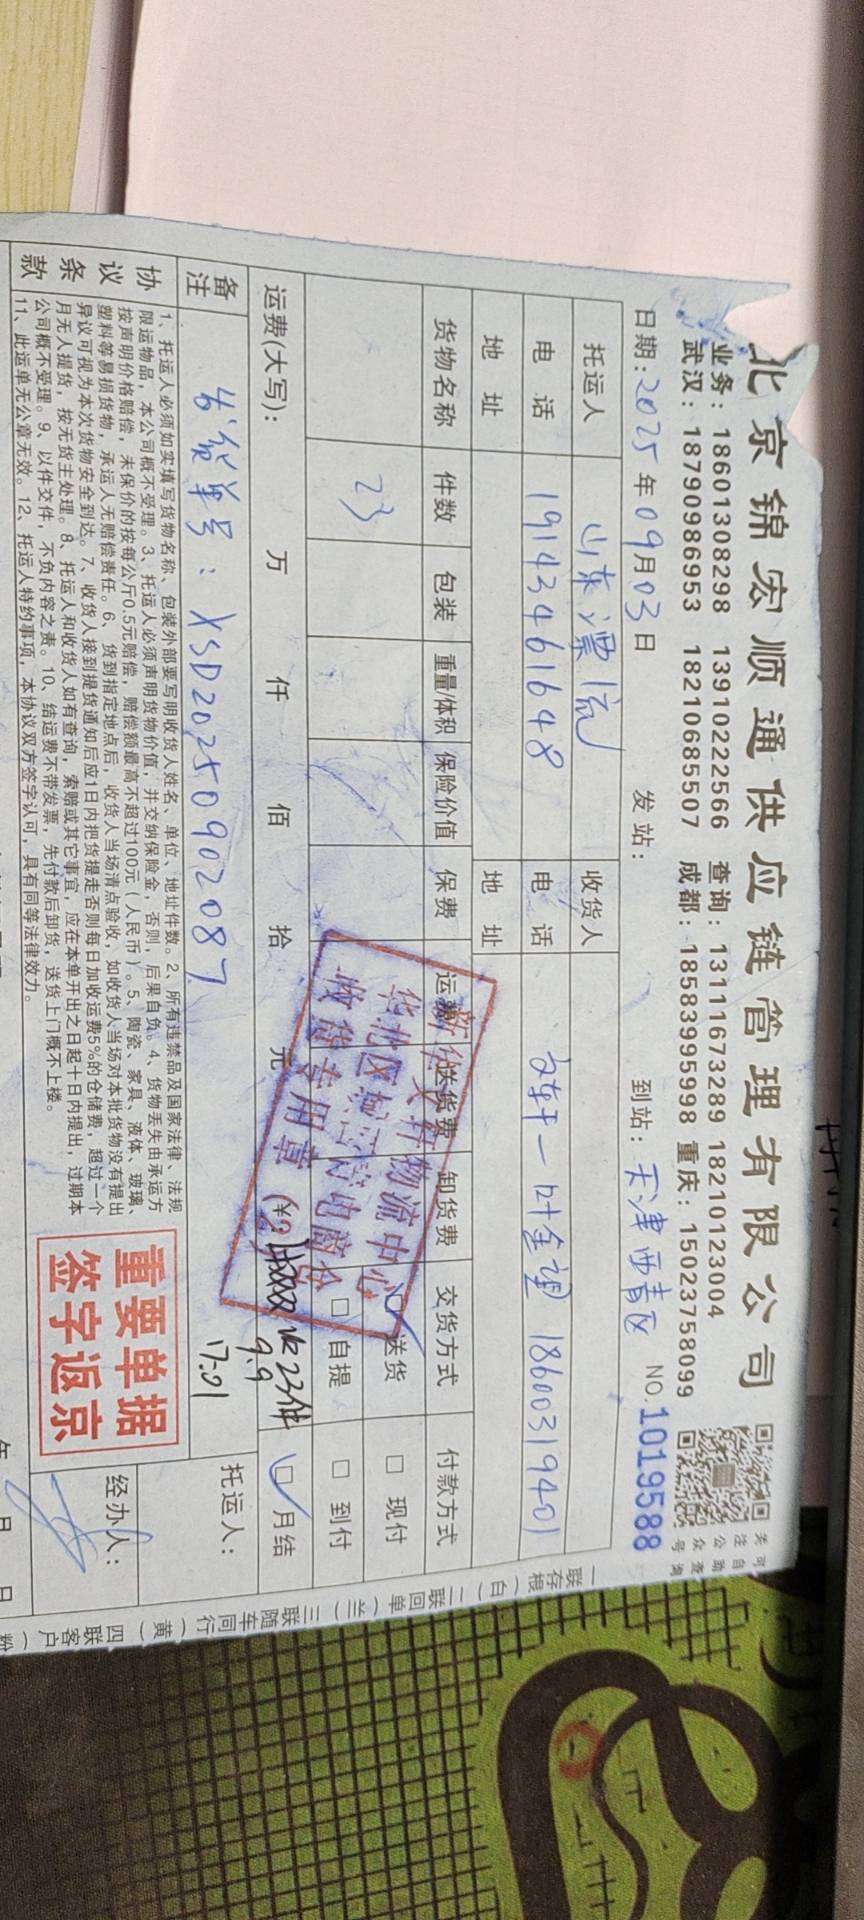 北京锦宏顺通供应链管理有限公司
业务：18601308298 13910222566 查询：13111673289 18210123004
武汉：18790986953 18210685507 成都：18583995998 重庆：15023758099
日期：2025年09月03日 发站： 到站：天津西青区 NO.1019588
托运人 山东漂流 收货人
电话 19143461648 电话 文轩一叶金望 18600319401
地址 地址
货物名称 件数 包装 重量/体积 保险价值 保费 运费 送货费 卸货费 交货方式 付款方式
23 送货 现付
自提 到付
运费(大写)： 万 仟 佰 拾 元 (¥: 月结
收23件
9.9
17:01
新华文轩物流中心
华北区域
收货专用章
备注 发货单号：XSD20250902087
托运人：
协议条款
1、托运人必须如实填写货物名称、包装外部要写明收货人姓名、单位、地址件数。2、所有违禁品及国家法律、法规
限运物品，本公司概不受理。3、托运人必须声明货物价值，并交纳保险金，否则，后果自负。4、货物丢失由承运方
按声明价格赔偿，未保价的按每公斤0.5元赔偿，赔偿额最高不超过100元（人民币）。5、陶瓷、家具、液体、玻璃、
塑料等易损货物，承运人无赔偿责任。6、货到指定地点后，收货人当场清点验收，如收货人当场对本批货物没有提出
异议可视为本次货物安全到达。7、收货人接到提货通知后应1日内把货提走否则每日加收运费5%的仓储费，超过一个
月无人提货，按无货主处理。8、托运人和收货人如有查询，索赔或其它事宜，应在本单开出之日起十日内提出，过期本
公司概不受理。9、以件交件，不负内容之责。10、结运费不带发票，先付款后卸货，送货上门概不上楼。
11、此运单无公章无效。12、托运人特约事项，本协议双方签字认可，具有同等法律效力。
重要单据
签字返京
经办人：
年 月 日
一联存根（白）二联回单（兰）三联随车同行（黄）四联客户（粉